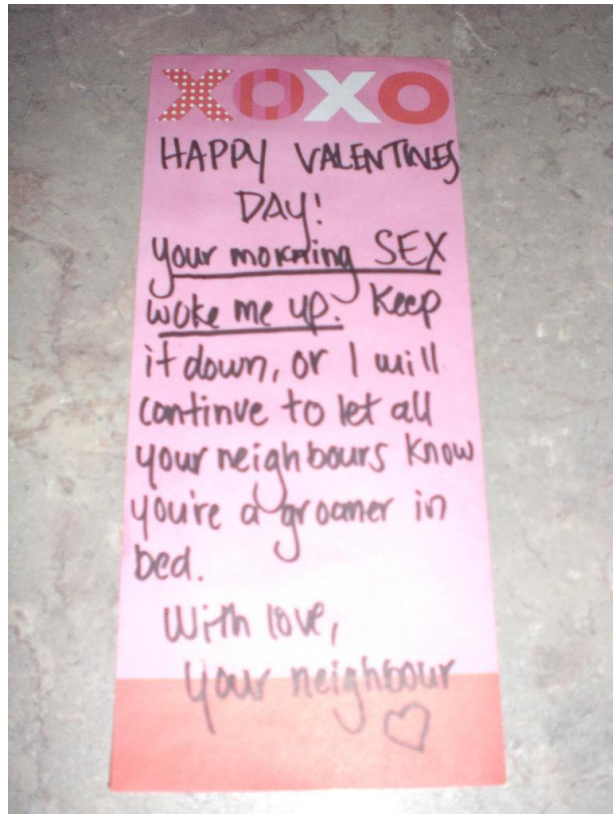 XOXO
HAPPY VALENTINES
DAY!
your morning SEX
woke me up. Keep
it down, or I will
continue to let all
your neighbours know
you're a groaner in
bed.
With love,
your neighbour